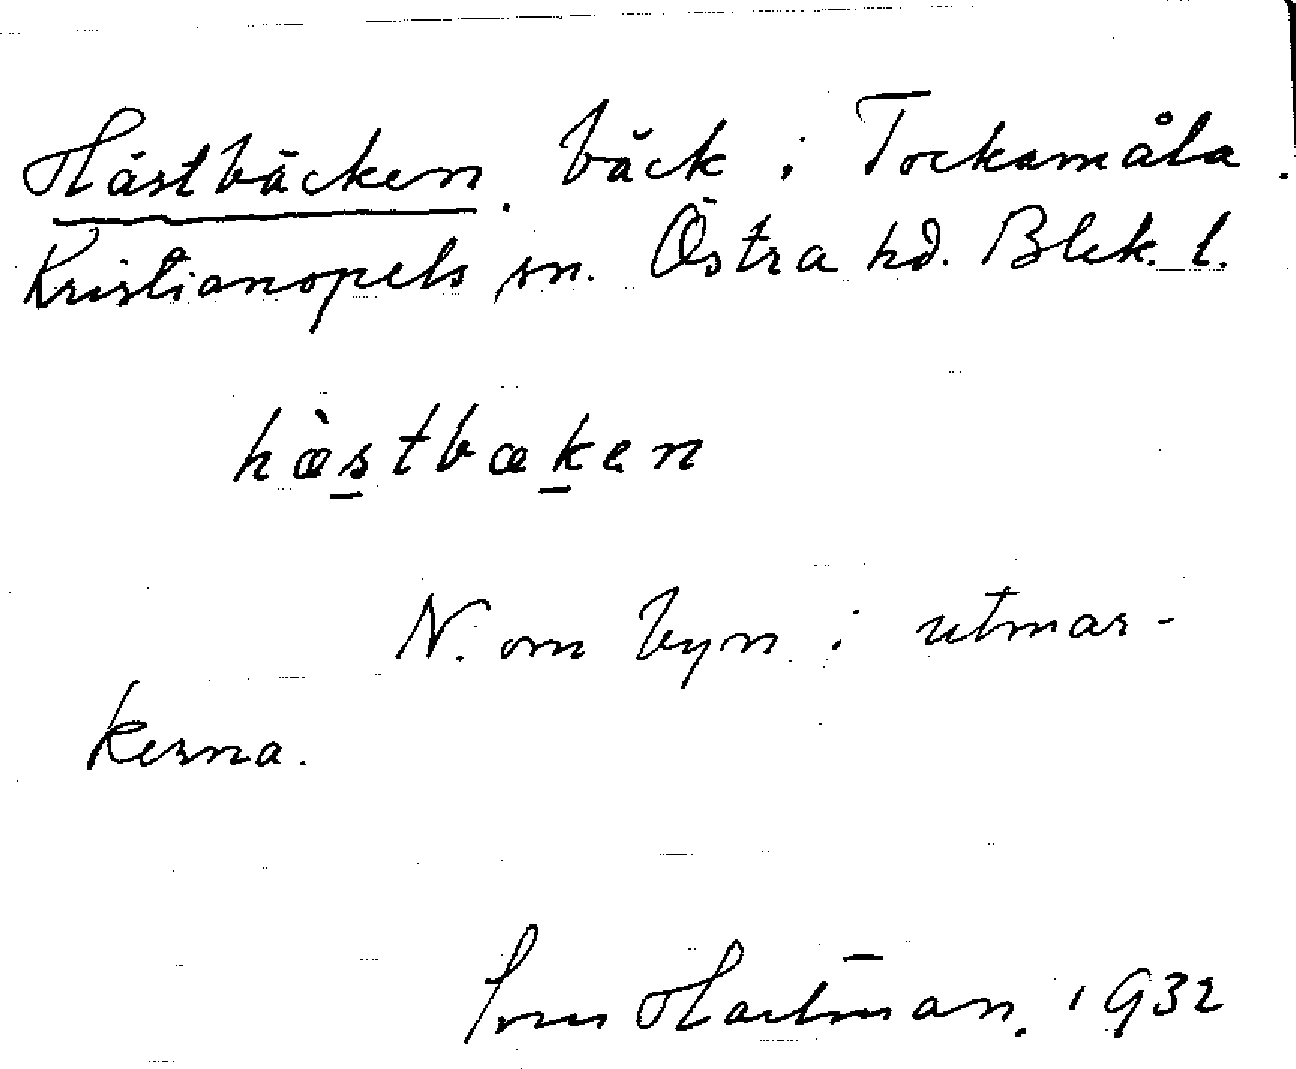 Hästbäcken. bäck i Tockamåla.
Kristianopels sn. Östra hd. Blek. l.
hæ̀s̠tbæk̠en
N. om byn i utmar-
kerna.
Hartman. 1932